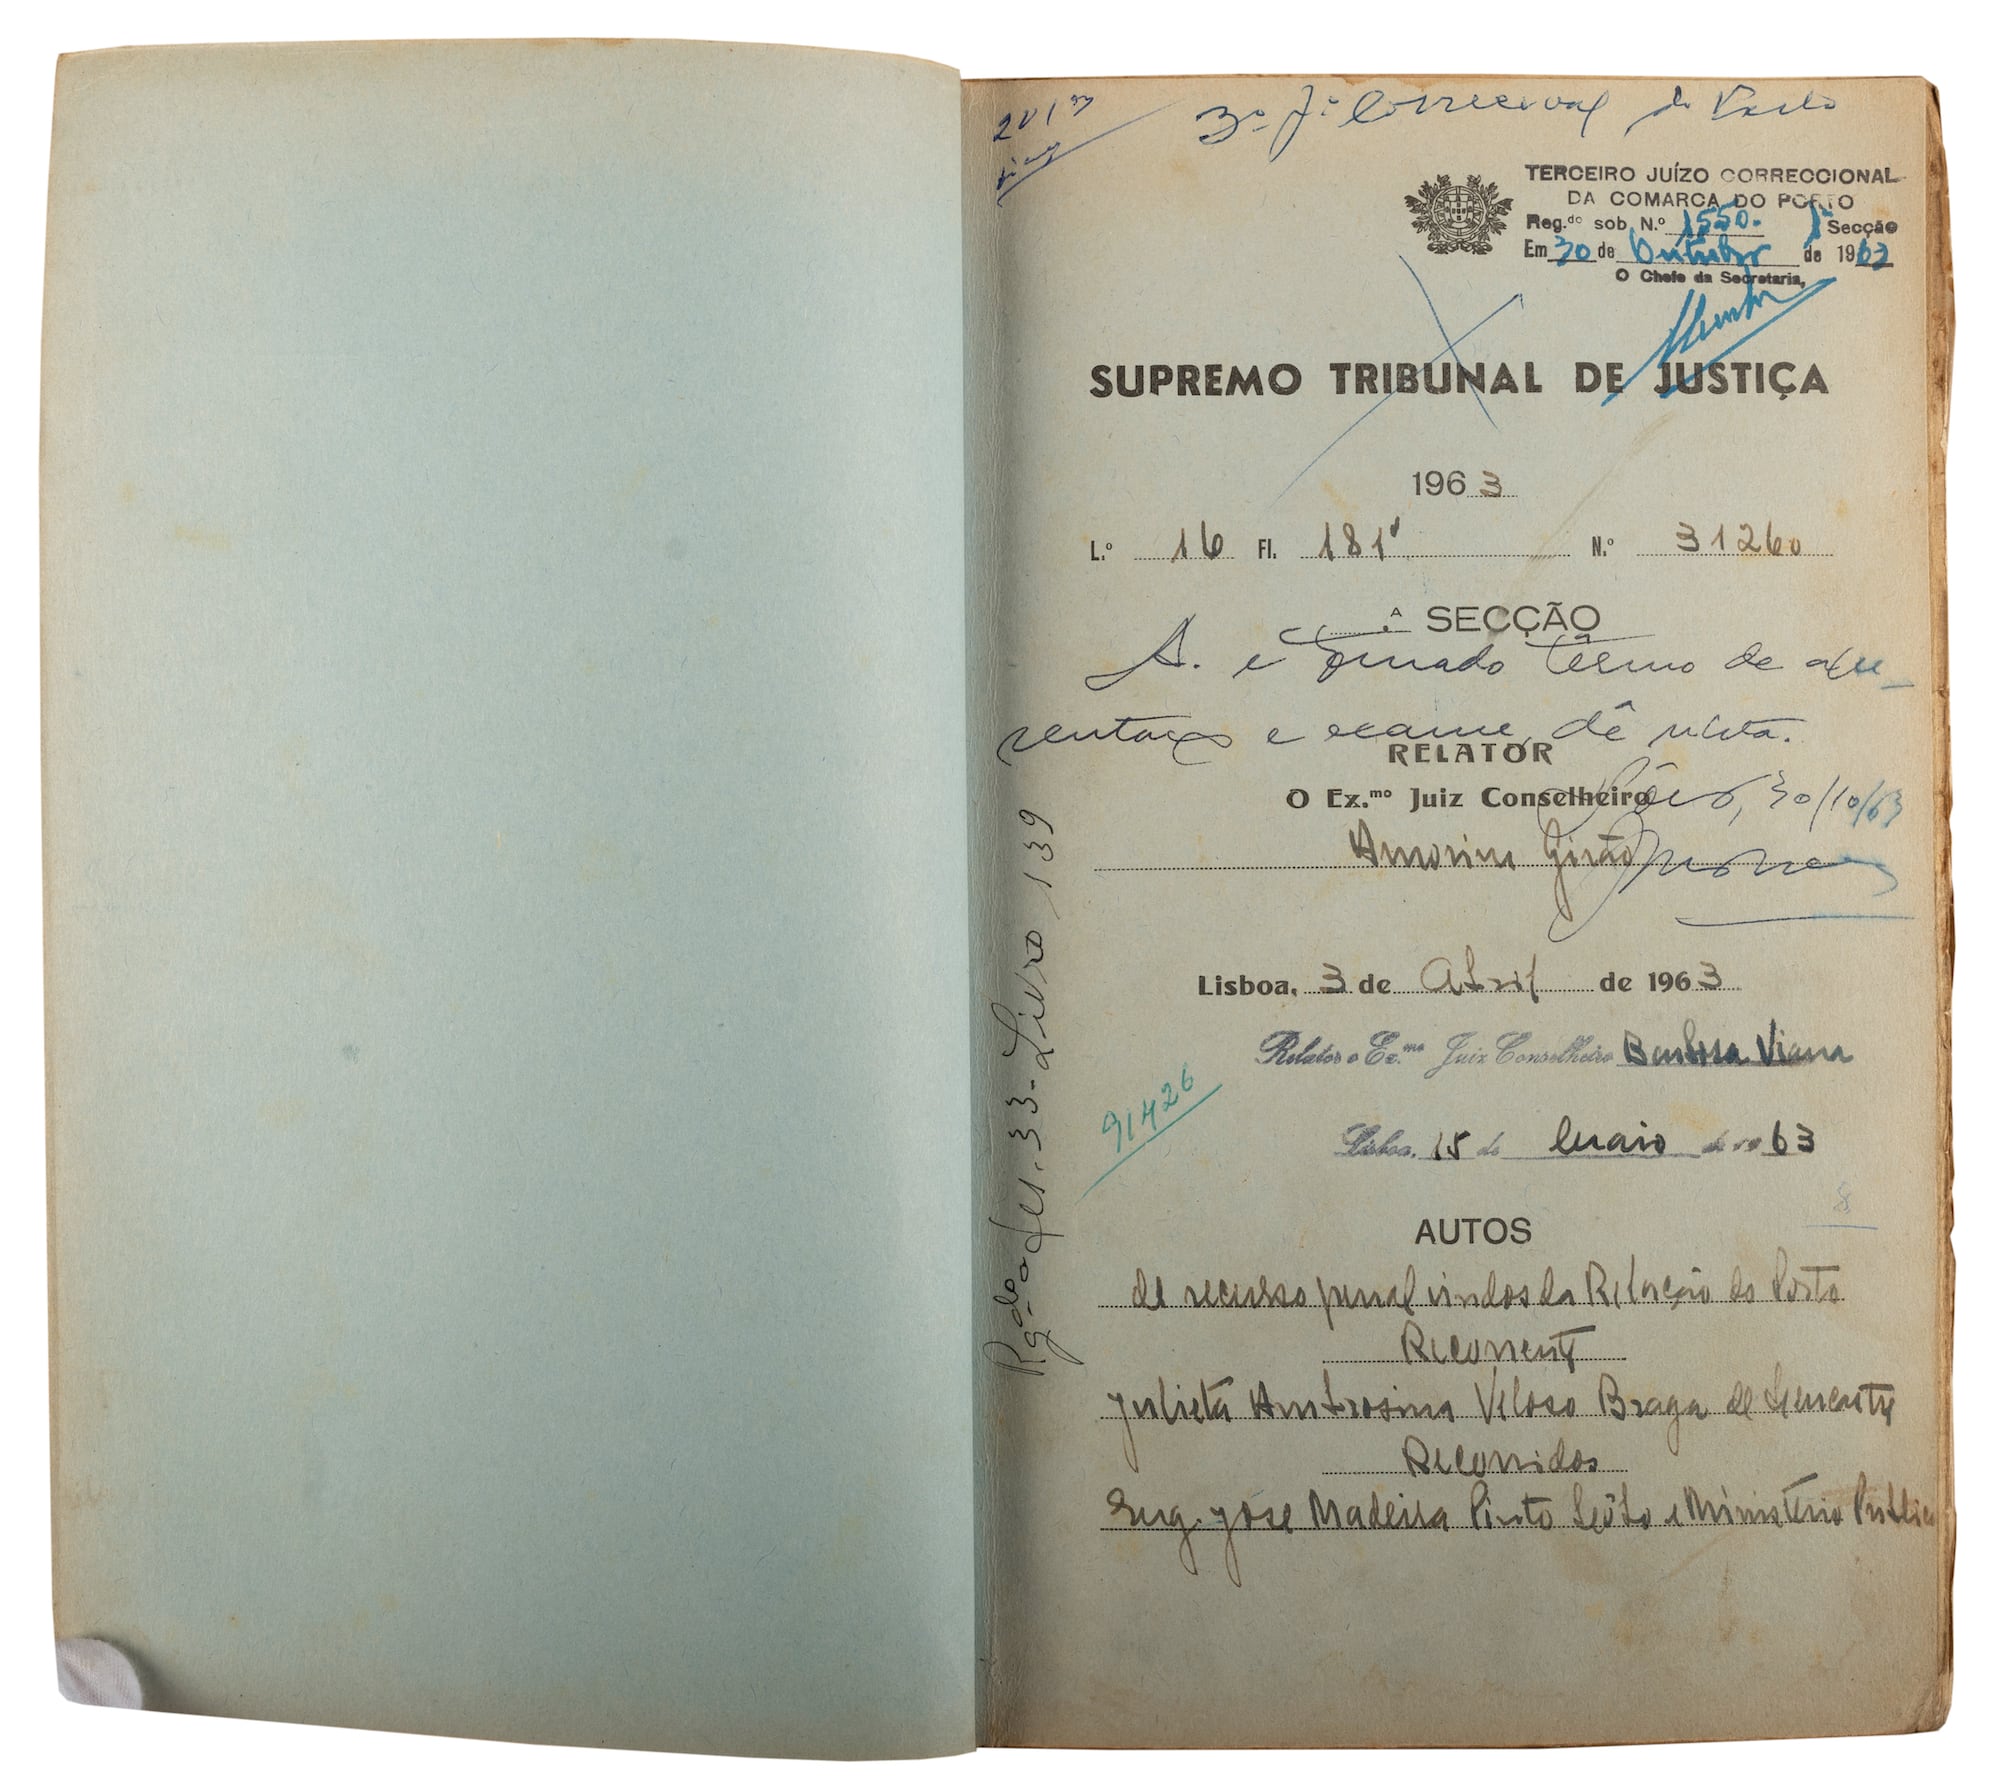 3º Jº Correcional do Porto
TERCEIRO JUÍZO CORRECCIONAL
DA COMARCA DO PORTO
Reg.do sob N.º 1550. 1ª Secção
Em 30 de Outubro de 1963
O Chefe da Secretaria,
SUPREMO TRIBUNAL DE JUSTIÇA
1963
L.º 16 Fl. 181v N.º 31260
.ª SECÇÃO
A. e tomado têrmo de apre-
sentação e exame, dê vista.
RELATOR
O Ex.mo Juiz Conselheiro
30/10/63
Amorim Girão
Lisboa, 3 de Abril de 1963
Relator o Ex.mo Juiz Conselheiro Barbosa Viana
91426
Lisboa, 15 de Maio de 1963
AUTOS
de recurso penal vindos da Relação do Porto
Recorrente
Julieta Ambrosina Veloso Braga de
Recorridos
Eng. José Madeira Pinto Lobo e Ministério Público
Rg.do a fls. 33 - Livro 139